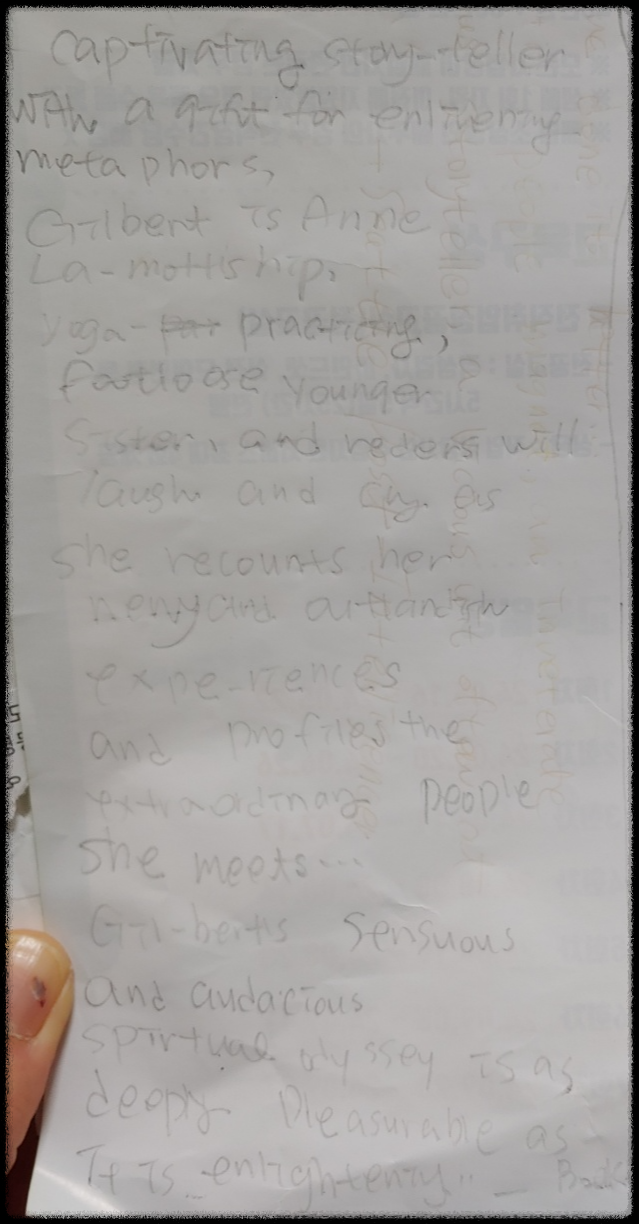 captivating story-teller
with a gift for enlivening
metaphors,
Gilbert is Anne
La-mottis hip,
yoga- practicing,
footloose younger
sister, and reders will
laugh and cry as
she recounts her
nervy and outlandish
expe-riences
and profiles the
extraordinary people
she meets...
Gil-bert's sensuous
and audacious
spirtual odyssey is as
deeply pleasurable as
It is enlightening" —